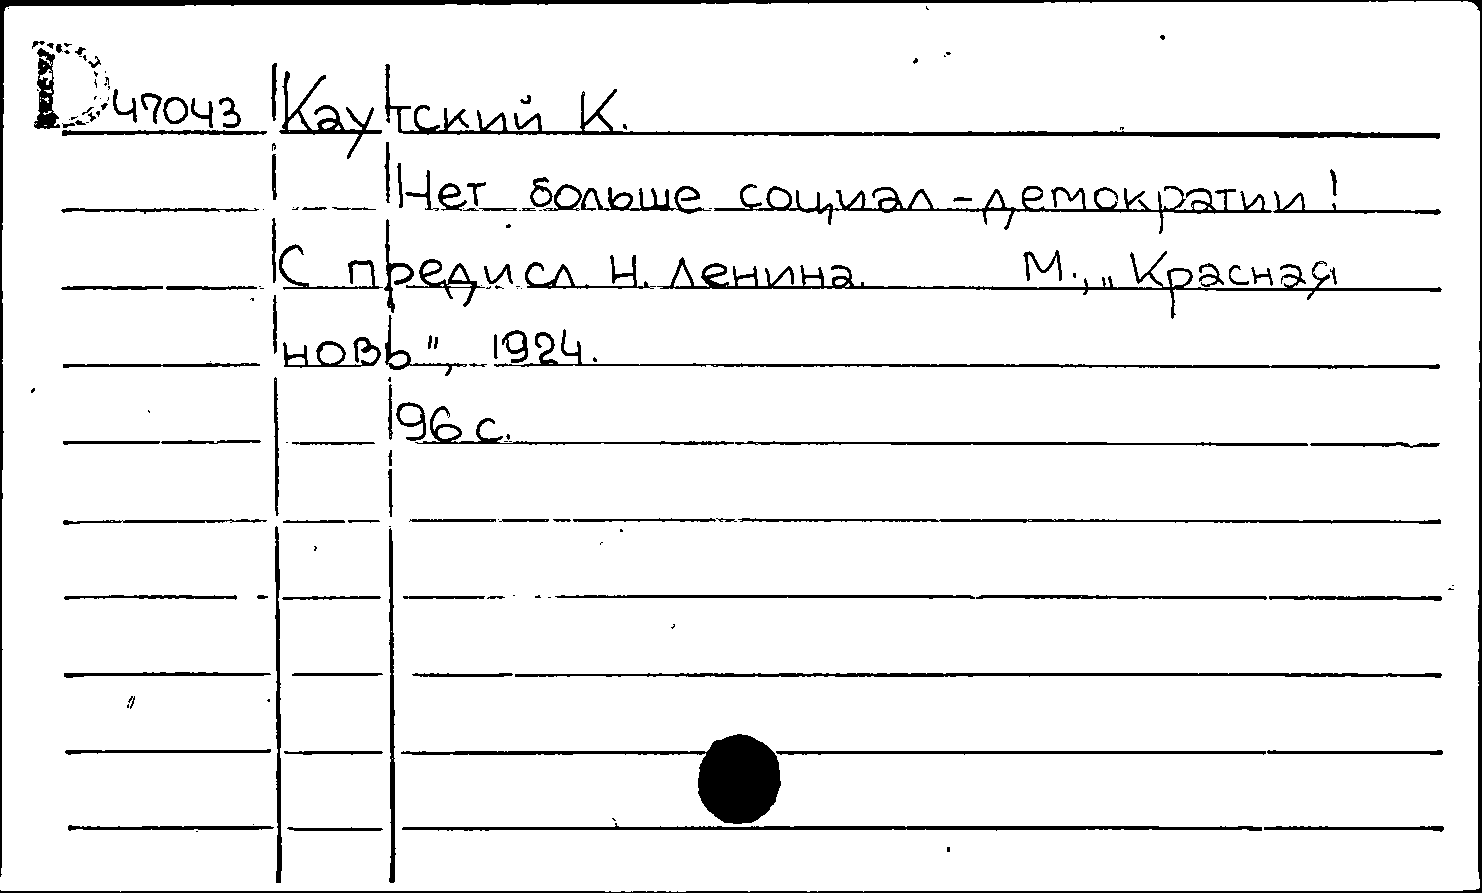 D 47043 Каутский К.
Нет больше социал-демократии!
С предисл. Н. Ленина. М., „Красная
новь", 1924.
96 с.